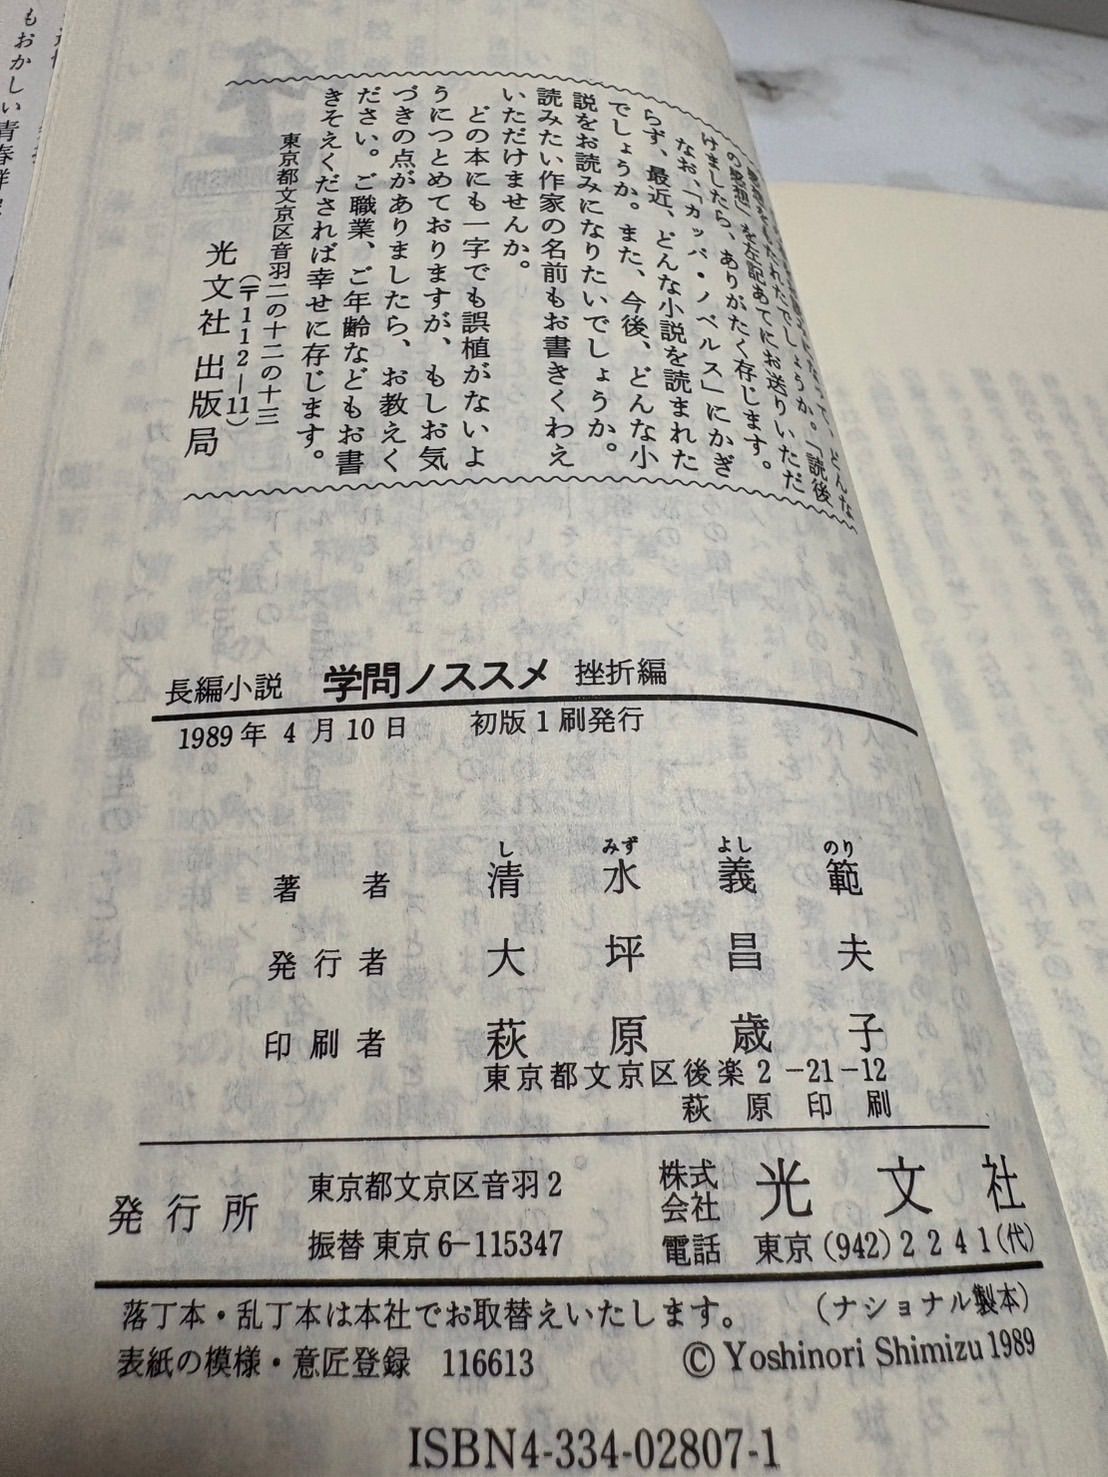 もおかしい青春群
の感想」を左記あてにお送りいただ
けましたら、ありがたく存じます。
なお、「カッパ・ノベルス」にかぎ
らず、最近、どんな小説を読まれた
でしょうか。また、今後、どんな小
説をお読みになりたいでしょうか。
読みたい作家の名前もお書きくわえ
いただけませんか。
どの本にも一字でも誤植がないよ
うにつとめておりますが、もしお気
づきの点がありましたら、お教えく
ださい。ご職業、ご年齢などもお書
きそえくだされば幸せに存じます。
東京都文京区音羽二の十二の十三
(〒112—11)
光文社 出版局
長編小説 学問ノススメ 挫折編
1989年 4月10日 初版1刷発行
し みず よし のり
著者 清水義範
発行者 大坪昌夫
印刷者 萩原歳子
東京都文京区後楽2-21-12
萩原印刷
発行所 東京都文京区音羽2 株式会社 光文社
振替 東京6-115347 電話 東京(942)2241(代)
落丁本・乱丁本は本社でお取替えいたします。 (ナショナル製本)
表紙の模様・意匠登録 116613 © Yoshinori Shimizu 1989
ISBN4-334-02807-1